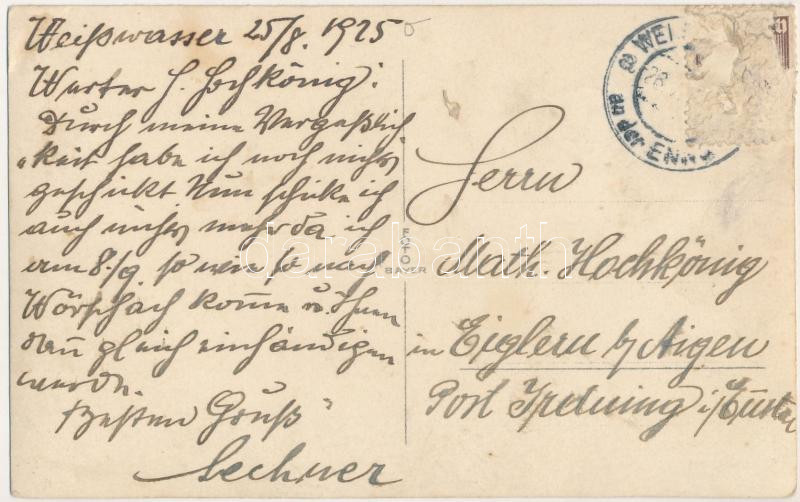 Weißwasser 25/8. 1925
Werter H. Hochkönig!
Durch meine Vergeßlich
keit habe ich noch nichts
geschickt. Nun schicke ich
auch nichts mehr da ich
am 8./9. so wie so nach
Wörschach komme u. Ihnen
dan̄ gleich einhändigen
werde.
Besten Gruß
Lechner
FOTO
BAYER
Herrn
Math. Hochkönig
in Eiglern b/ Aigen
Post Irdning i/
WEI
an der ENNS
darabanth